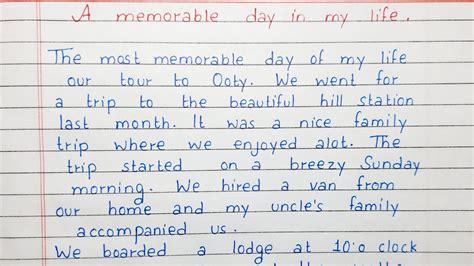 A memorable day in my life.
The most memorable day of my life
our tour to Ooty. We went for
a trip to the beautiful hill station
last month. It was a nice family
trip where we enjoyed alot. The
trip started on a breezy Sunday
morning. We hired a van from
our home and my uncle's family
accompanied us.
We boarded a lodge at 10:0 clock